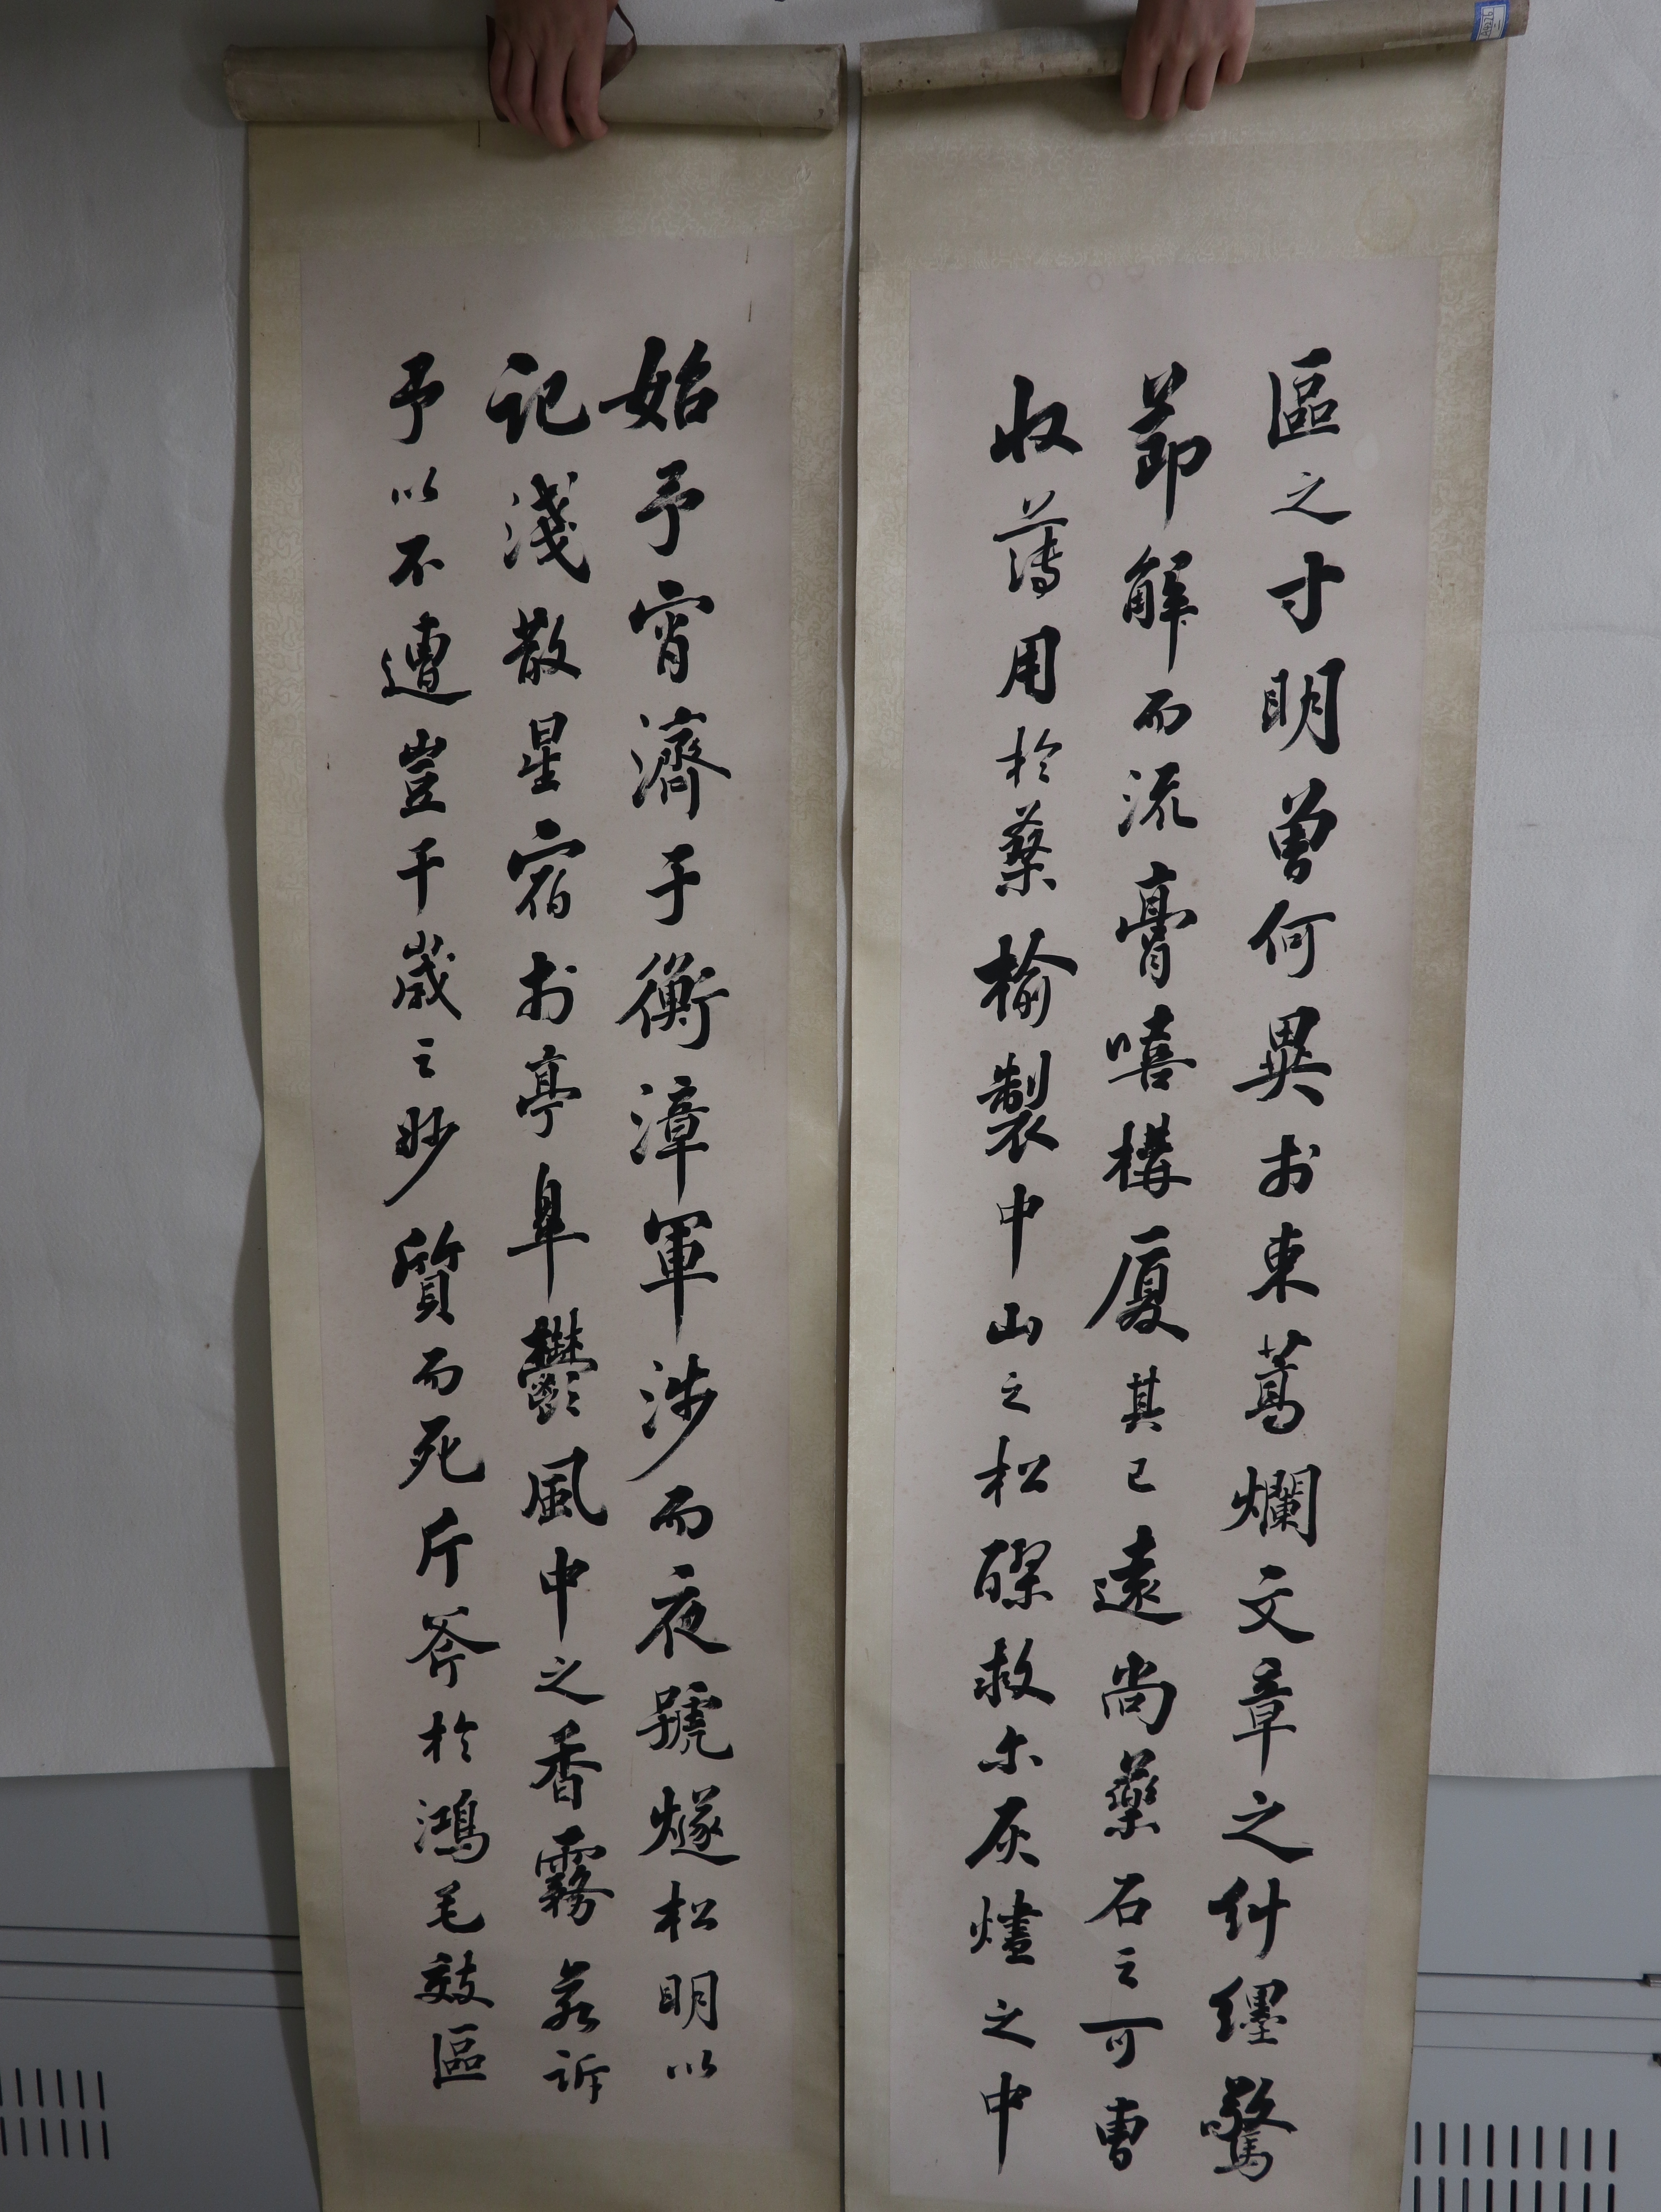 始予宵濟于衡漳軍涉而夜號燧松明以
記淺散星宿於亭皋鬱風中之香霧若訴
予以不遭豈千歲之妙質而死斤斧於鴻毛效區
區之寸明曾何異於束蒿爛文章之糾纏驚
節解而流膏嘻構廈其已遠尚藥石之可曹
收薄用於桑榆製中山之松醪救尒灰燼之中